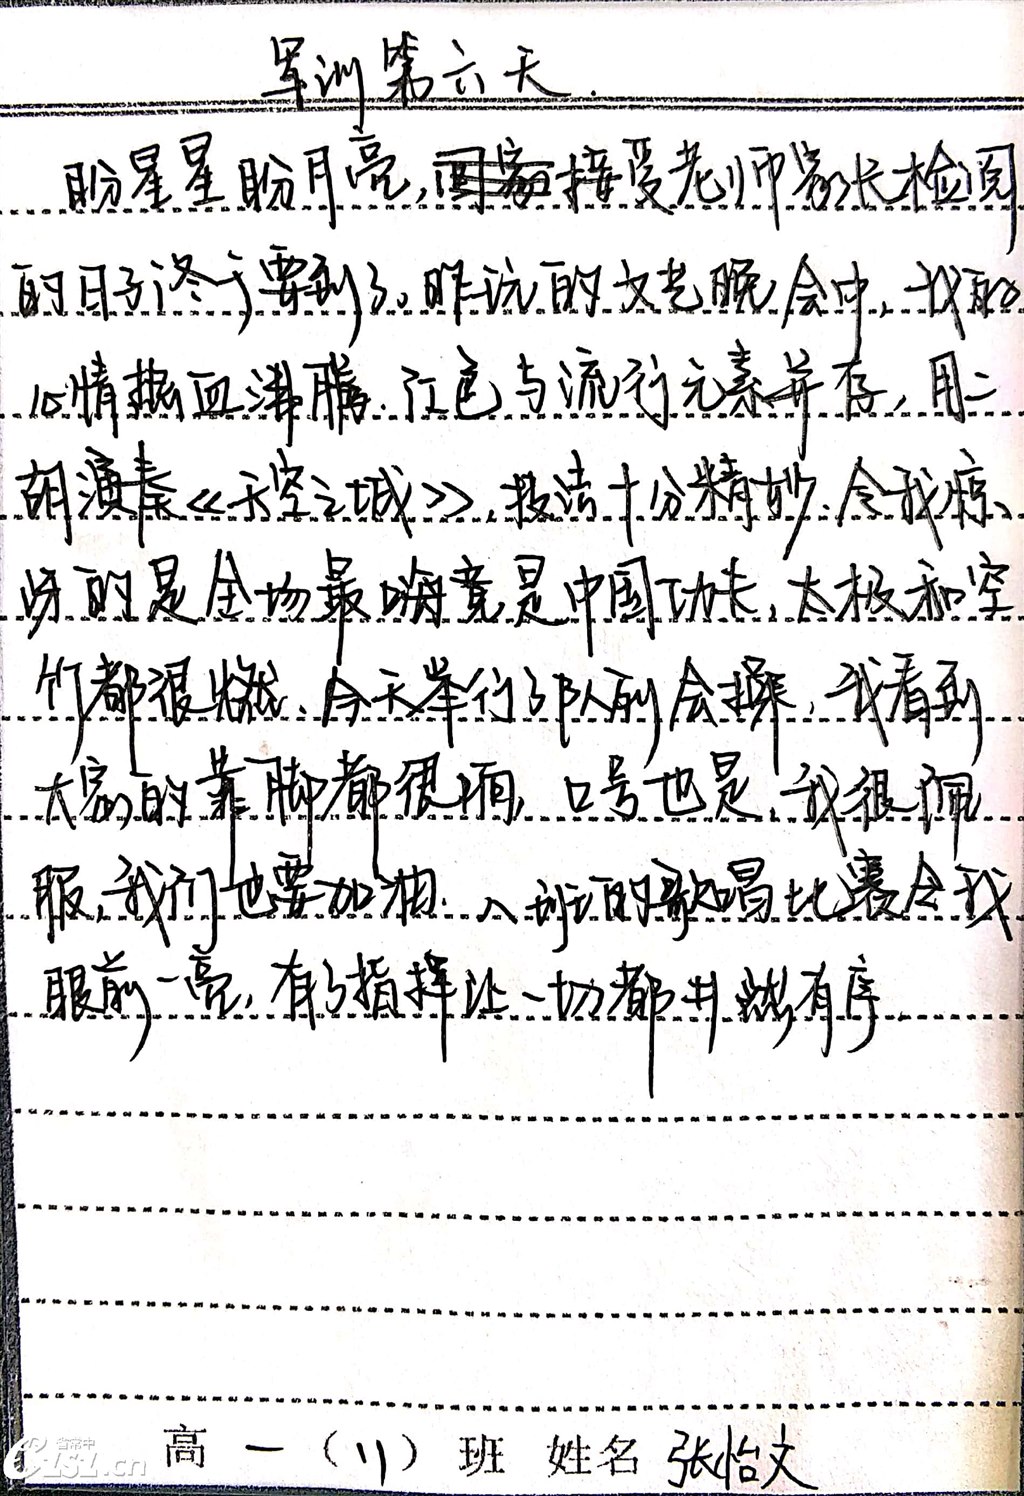 军训第六天.
盼星星盼月亮,接受老师家长检阅
的日子终于要到了。昨晚的文艺晚会中,我的
心情热血沸腾.红色与流行元素并存,用二
胡演奏《天空之城》,技法十分精妙.令我惊
讶的是全场最嗨竟是中国功夫,太极和空
竹都很燃.今天举行了队列会操,我看到
大家的靠脚都很响,口号也是,我很佩
服,我们也要加油.八班的歌唱比赛令我
眼前一亮,有了指挥让一切都井然有序.
高一(11)班 姓名 张怡文
省常中
CZSZ.cn